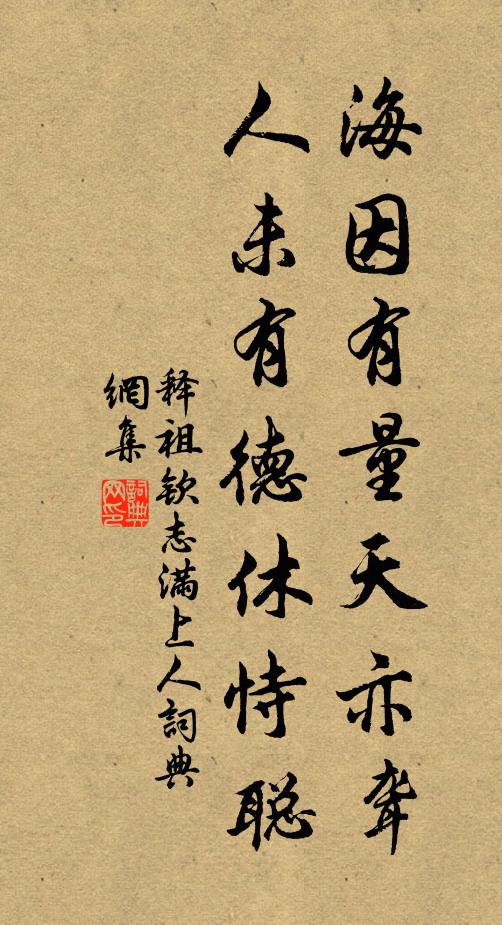 海因有量天亦聋
人未有德休恃聪
释祖钦志满上人詞典
網集
詞典
网印